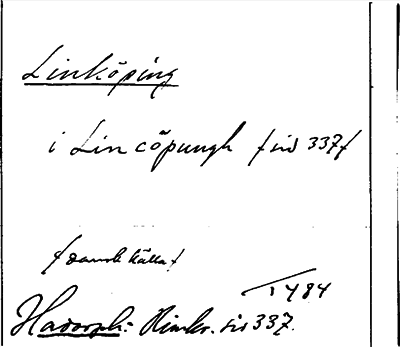 Linköping
i Lincöpungh /sid 337/
/dansk källa/
1484
Hadorph: Rimkr. sid 337.